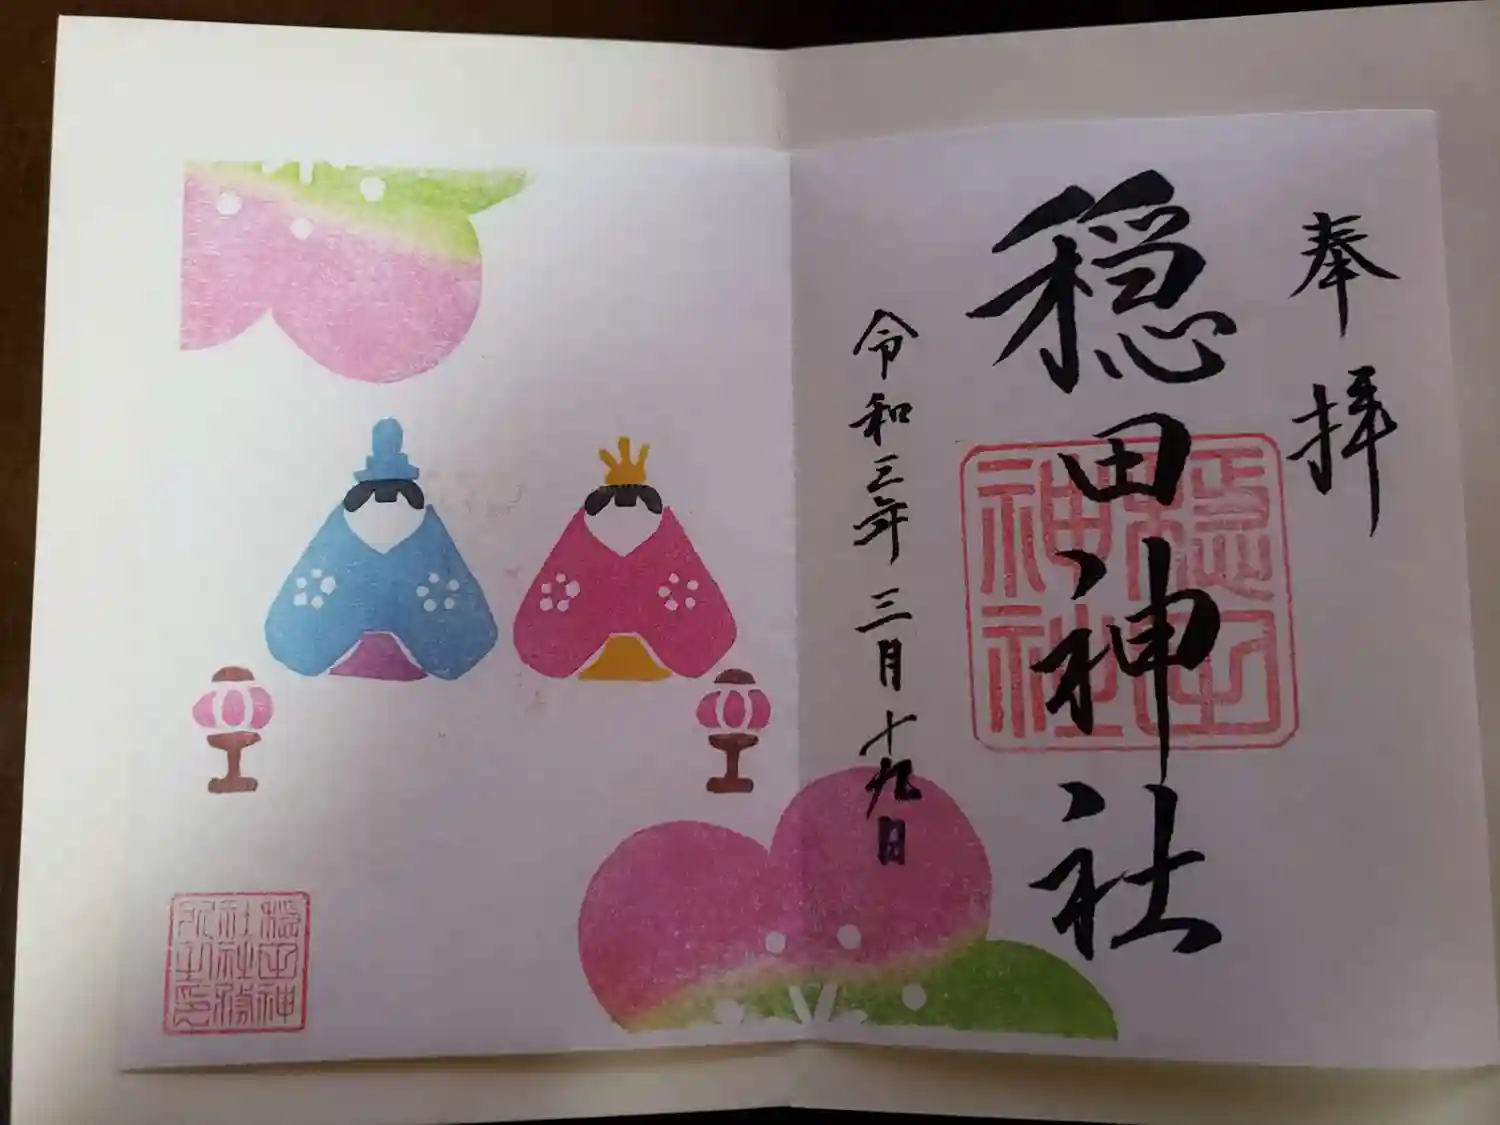 奉拝
穏田神社
穏田
神社
令和三年三月十九日
穏田神
社社務
所之印